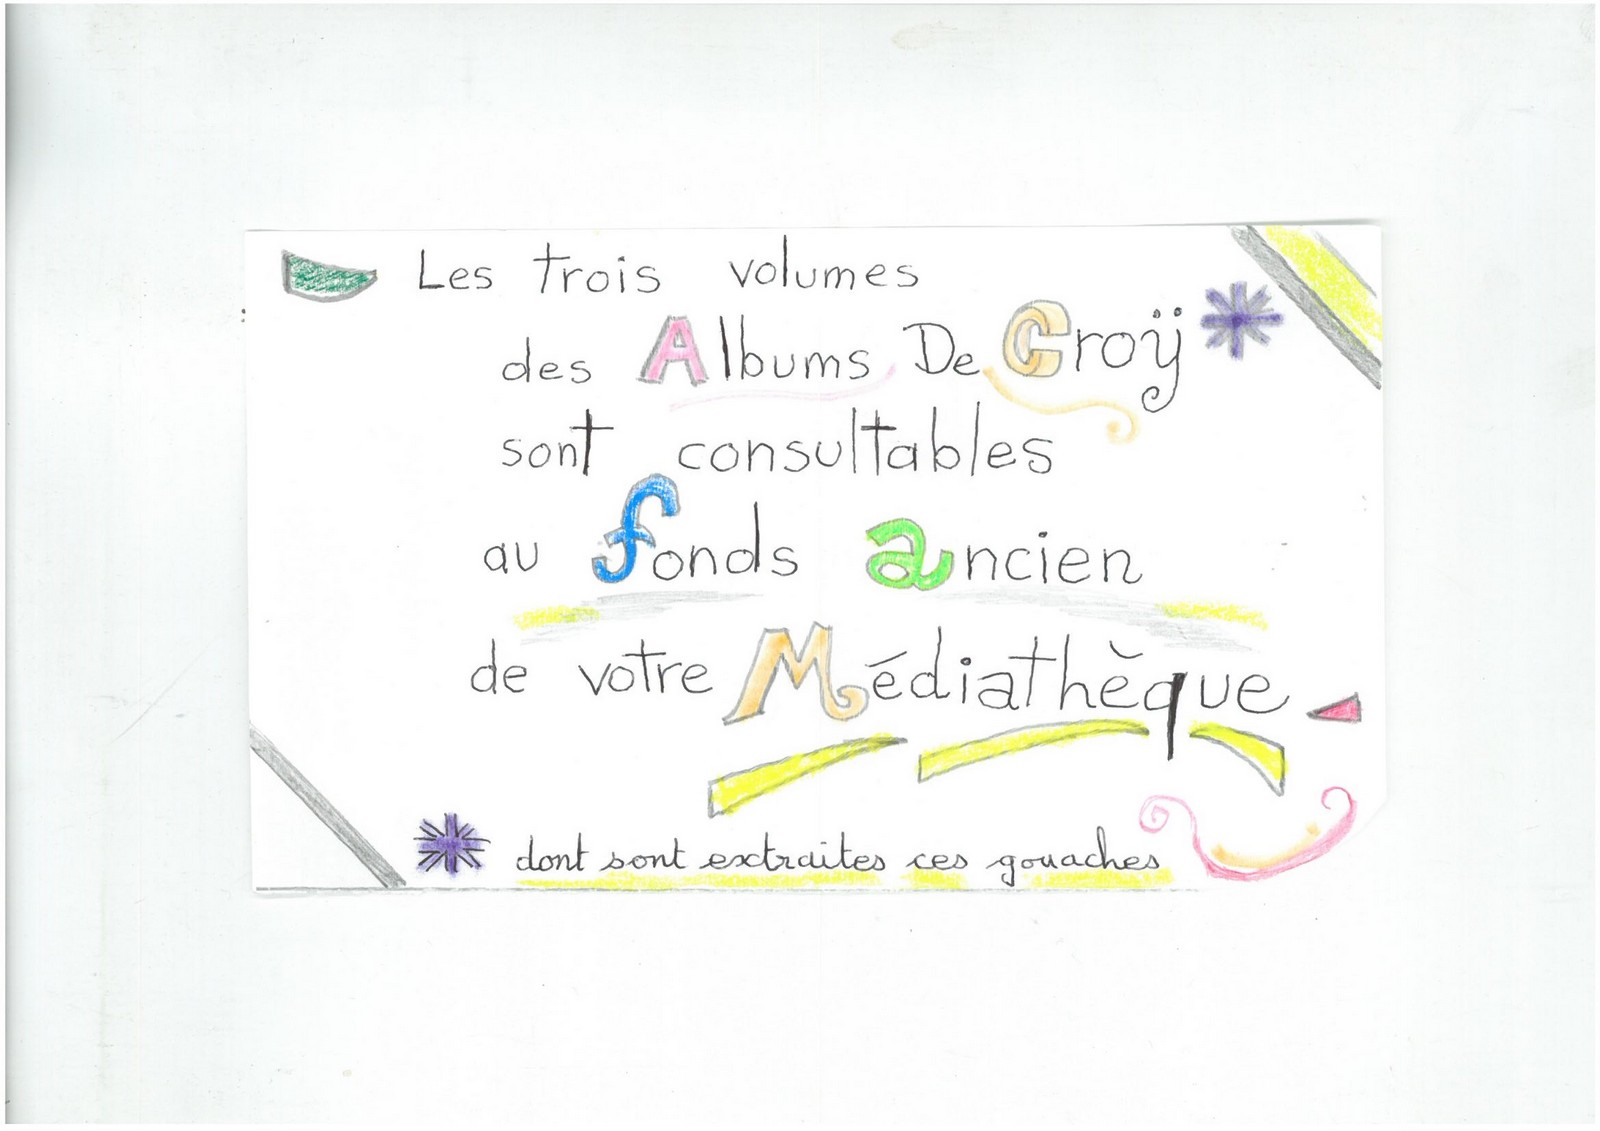 Les trois volumes
des Albums De Croÿ *
sont consultables
au fonds ancien
de votre Médiathèque
* dont sont extraites ces gouaches